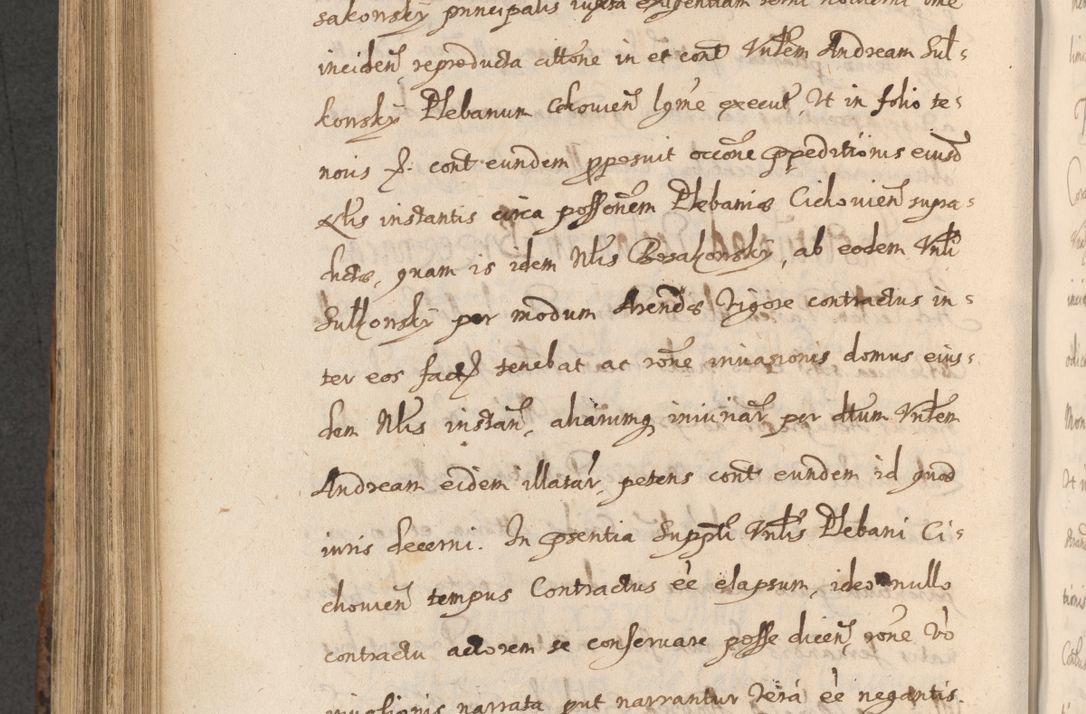 sakonsky principalis iuxta exigentiam termi hodierni ome
inciden̄ reproducta citt̄one in et cont̄ Vnlḃem Andream Sul-
konsky Plebanum Cokowien̄ lgm̄e execut̄. Vt in folio te-
noris s. cont̄ eundem proposuit occōne expeditionis eiusd
Nl̄is instantis circa possōnem Plebaniæ Cichovien̄ supra-
dictæ, quam is idem Nl̄is Brsakonsky, ab eodem Vnlḃi
Sulkonsky per modum Arendæ Vigore contractus in-
ter eos facti tenebat ac rōne inuasionis domus eius-
dem Nl̄is instan̄, aliarumq iniuriar̄ per dt̄um Vnlḃem
Andream eidem illatar̄, petens cont̄ eundem id quod
iuris decerni. In pn̄tia Suppt̄i Vnlḃis Plebani Ci-
chouien̄ tempus Contractus eē elapsum, ideo nullo
contractu actorem se conseruare posse dicen̄ rōne Vo
inuasionis narrata put narrantur Vera eē negantis.